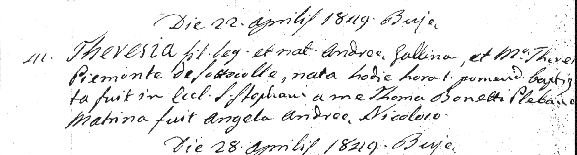 Die 22. Aprilis 1849. Buje.
Theresia fil. leg. et nat. Andreæ Gallina, et Mæ. There
Piemonte de Sottocolle, nata hodie hora 1. pomerid. baptiz
ta fuit in Eccl. S. Stephani a me Thoma Bonetti Plebano
Matrina fuit Angela Andreæ Nicoloso.
Die 28. Aprilis 1849. Buje.